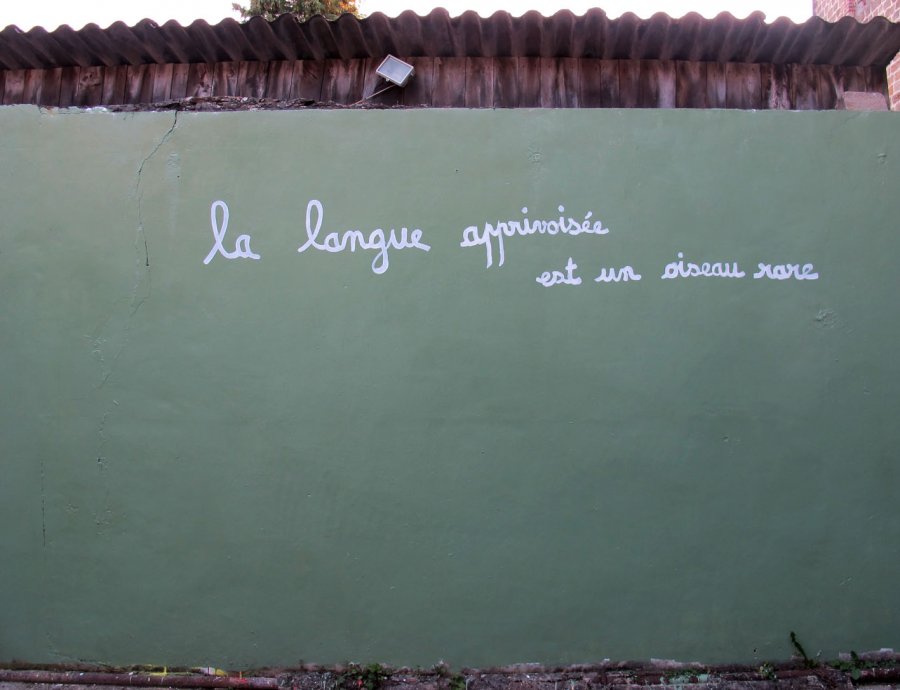 la langue apprivoisée
est un oiseau rare